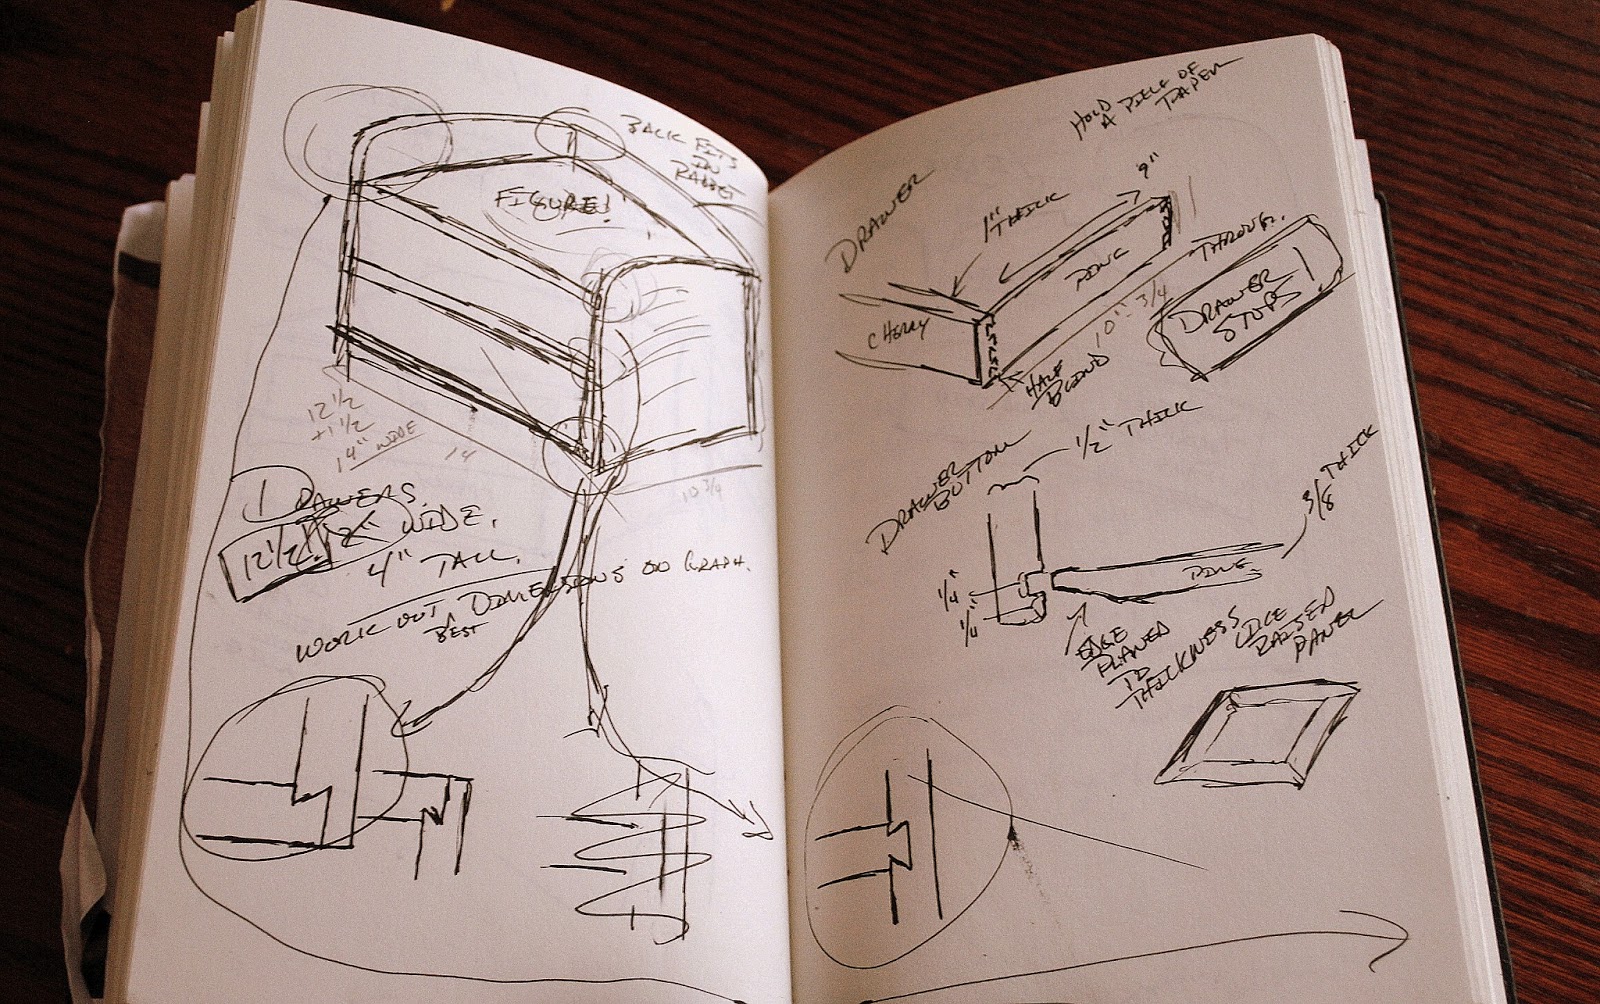 BACK FITS
IN
RABBET
FIGURE!
12 1/2
+1 1/2
14" WIDE
14
10 3/4
DRAWERS.
12 1/2" 12" WIDE.
4" TALL.
WORK OUT DIMENSIONS ON GRAPH.
BEST
HOLD
A PIECE OF
PAPER
DRAWER
1" THICK
9"
CHERRY
PINE
THROUGH.
10"-3/4
HALF
BLIND
DRAWER
STOPS!
DRAWER
BOTTOM
1/2" THICK
3/8 THICK
1/4"
1/4"
PINE
EDGE
PLANED
TO
THICKNESS
LIKE
RAISED
PANEL